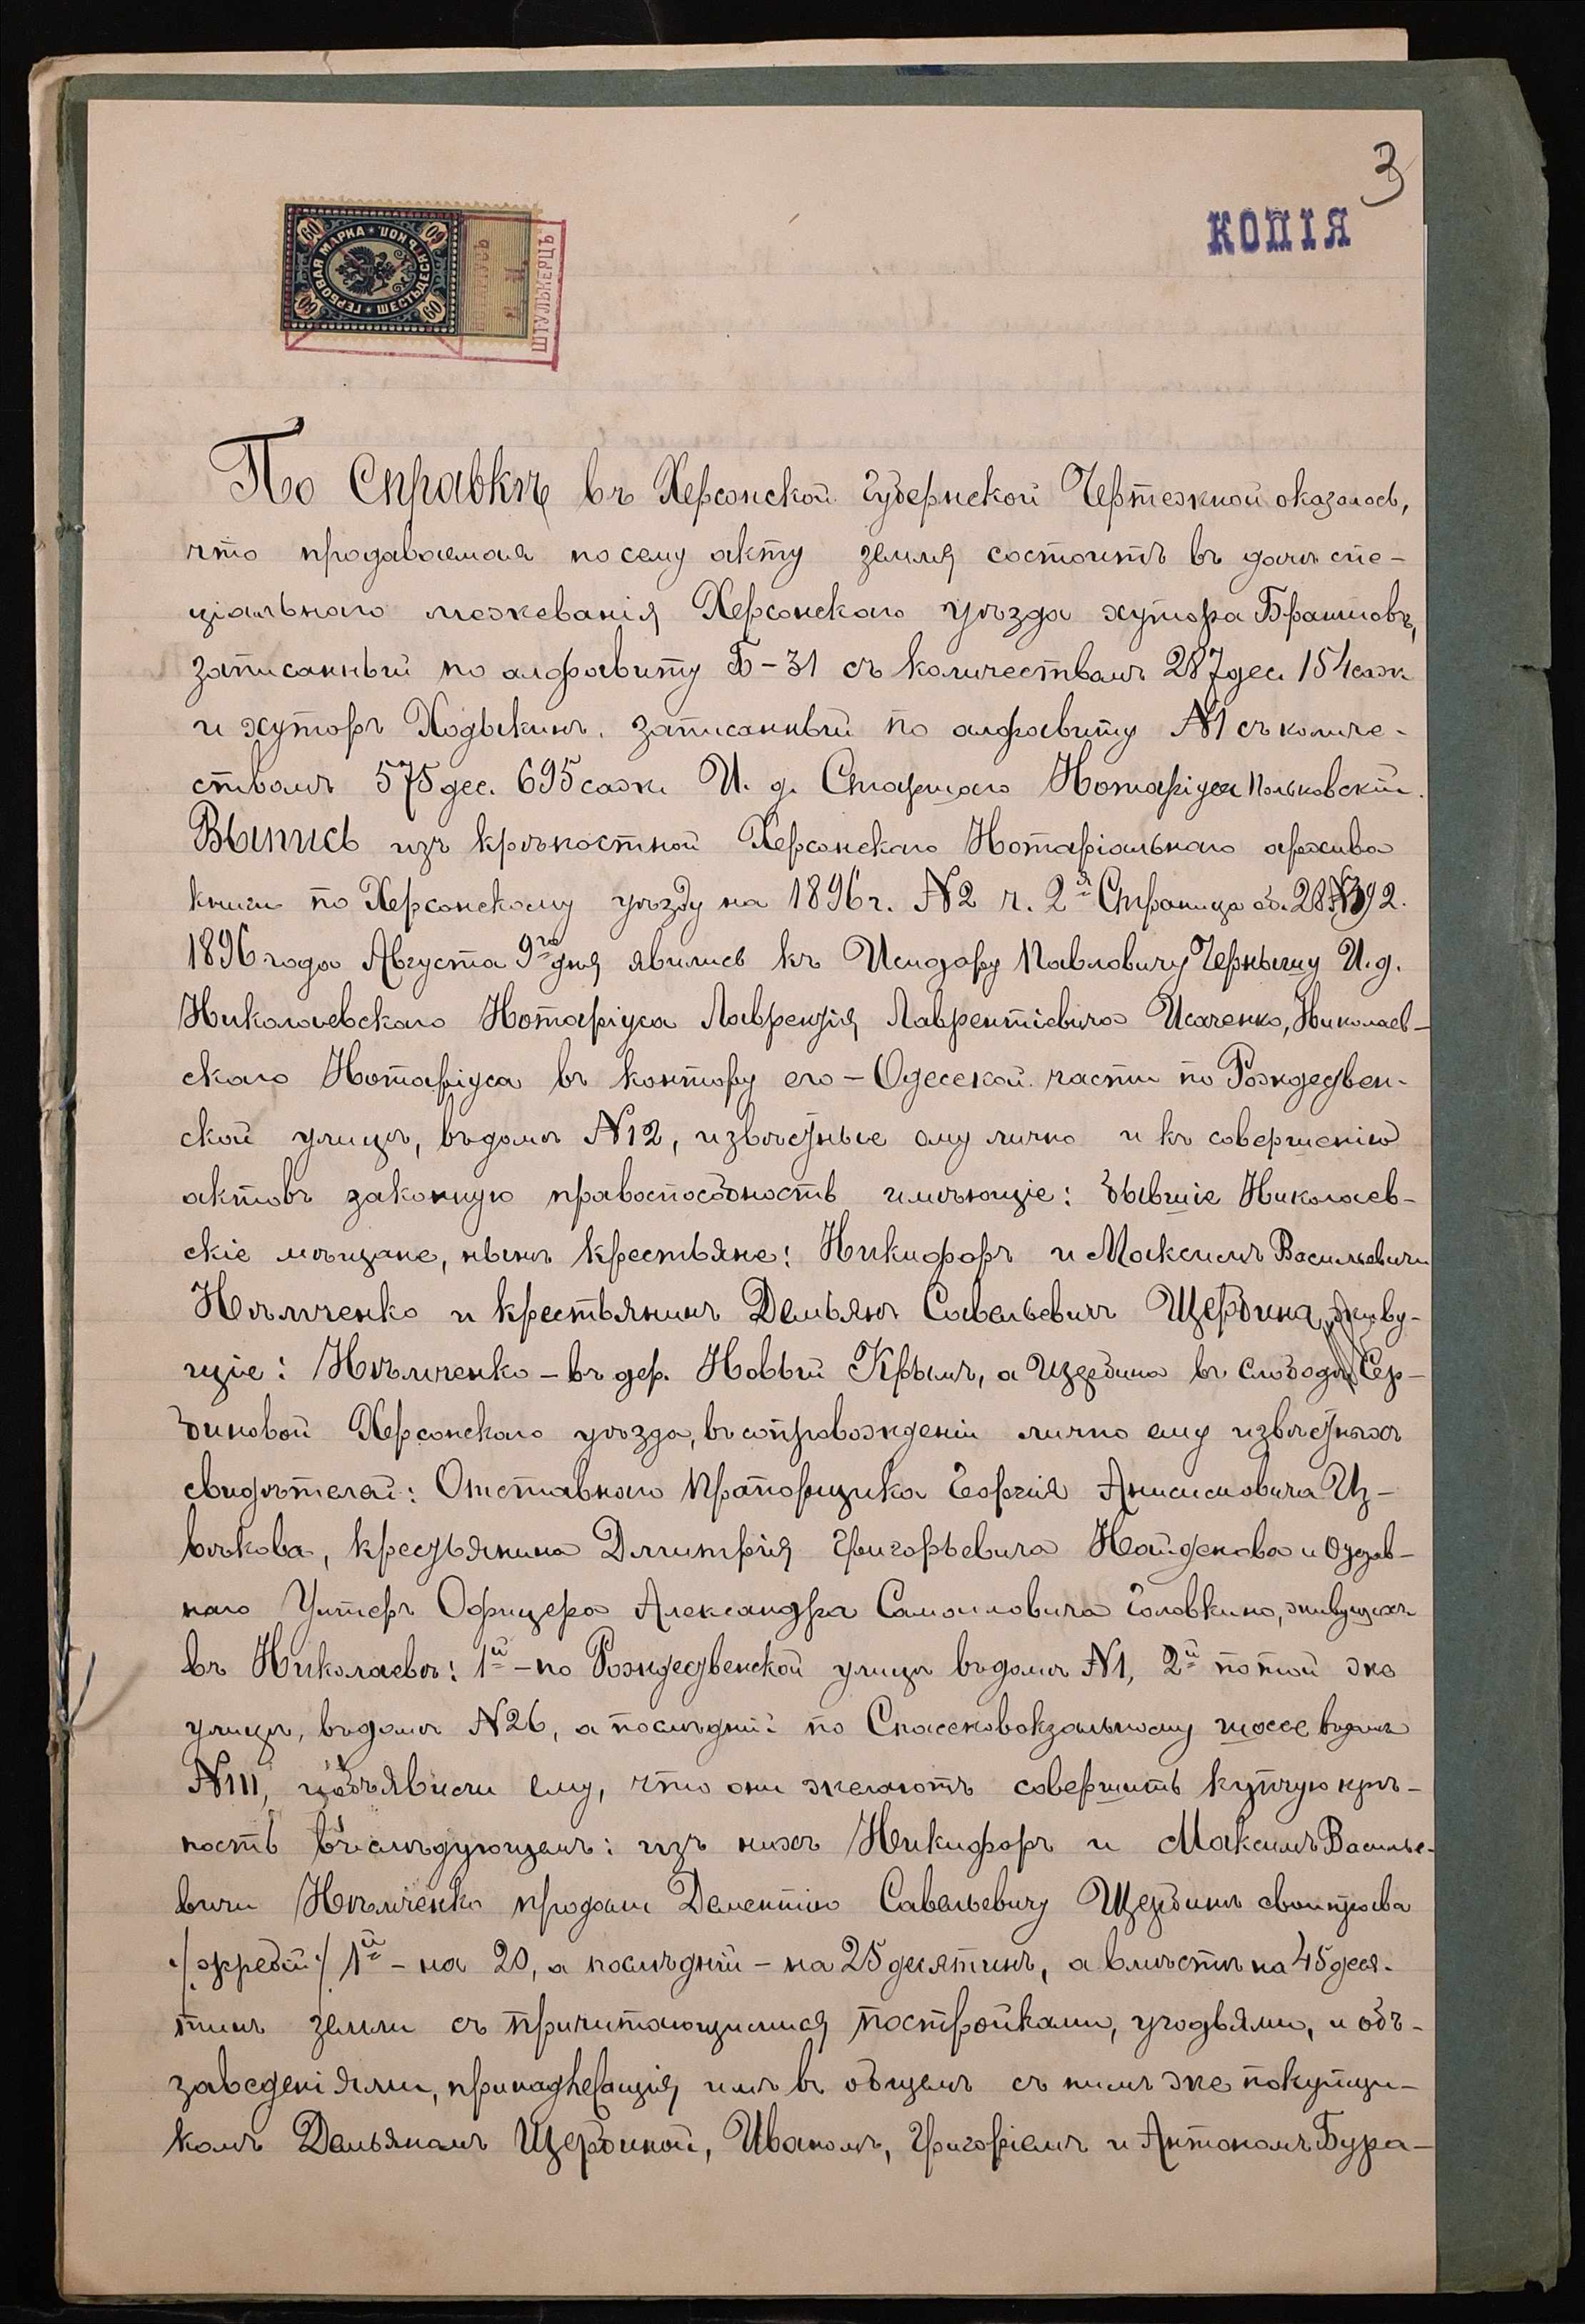 3
КОПІЯ
60 60 60 60
ГЕРБОВАЯ МАРКА * ШЕСТЬДЕСЯТЪ КОП. *
ШТУЛЬКЕРЦЪ
По Справкѣ въ Херсонской Губернской Чертежной оказалось,
что продаваемая по сему акту земля состоитъ въ дачѣ спе-
ціальнаго межеванія Херсонскаго уѣзда хутора Братновъ,
записанный по алфавиту Б-31 съ количествомъ 287 дес. 154 саж.
и хуторъ Ходыкинъ, записанный по алфавиту №1 съ количе-
ствомъ 575 дес. 695 саж. И. д. Старшаго Нотаріуса Польковскій.
Выпись изъ крѣпостной Херсонскаго Нотаріальнаго архива
книги по Херсонскому уѣзду на 1896 г. №2 ч. 2я Страница об. 28 №392.
1896 года Августа 9го дня явились къ Исидору Павловичу Чернышу И. д.
Николаевскаго Нотаріуса Лаврентія Лаврентіевича Исаченко, Николаев-
скаго Нотаріуса въ контору его - Одесской части по Рождествен-
ской улицѣ, въ домѣ №12, извѣстные ему лично и къ совершенію
актовъ законную правоспособность имѣющіе: бывшіе Николаев-
скіе мѣщане, нынѣ крестьяне: Никифоръ и Максимъ Васильевичи
Нѣмченко и крестьянинъ Демьянъ Савельевичъ Щербина, живу-
щіе: Нѣмченко - въ дер. Новый Крымъ, а Щербина въ слободѣ Сер-
биновой Херсонскаго уѣзда, въ сопровожденіи лично ему извѣстныхъ
свидѣтелей: Отставнаго Прапорщика Георгія Анисимовича Ц-
вѣкова, крестьянина Дмитрія Григорьевича Найденова и отстав-
наго Унтеръ Офицера Александра Самойловича Головкина, живущихъ
въ Николаевѣ: 1й - по Рождественской улицѣ въ домѣ №1, 2й по той же
улицѣ, въ домѣ №26, а послѣдній по Спассковокзальному шоссе въ домѣ
№111, и объявили ему, что они желаютъ совершить купчую крѣ-
пость въ слѣдующемъ: изъ нихъ Никифоръ и Максимъ Василье-
вичи Нѣмченко продали Дементію Савельевичу Щербинѣ свои права
/жребій/ 1й - на 20, а послѣдній - на 25 десятинъ, а вмѣстѣ на 45 деся-
тинъ земли съ причитающимися постройками, угодьями, и объ-
заведеніями, принадлежащія имъ въ общемъ съ нимъ же покупщи-
комъ Демьяномъ Щербиной, Иваномъ, Григоріемъ и Антономъ Бура-